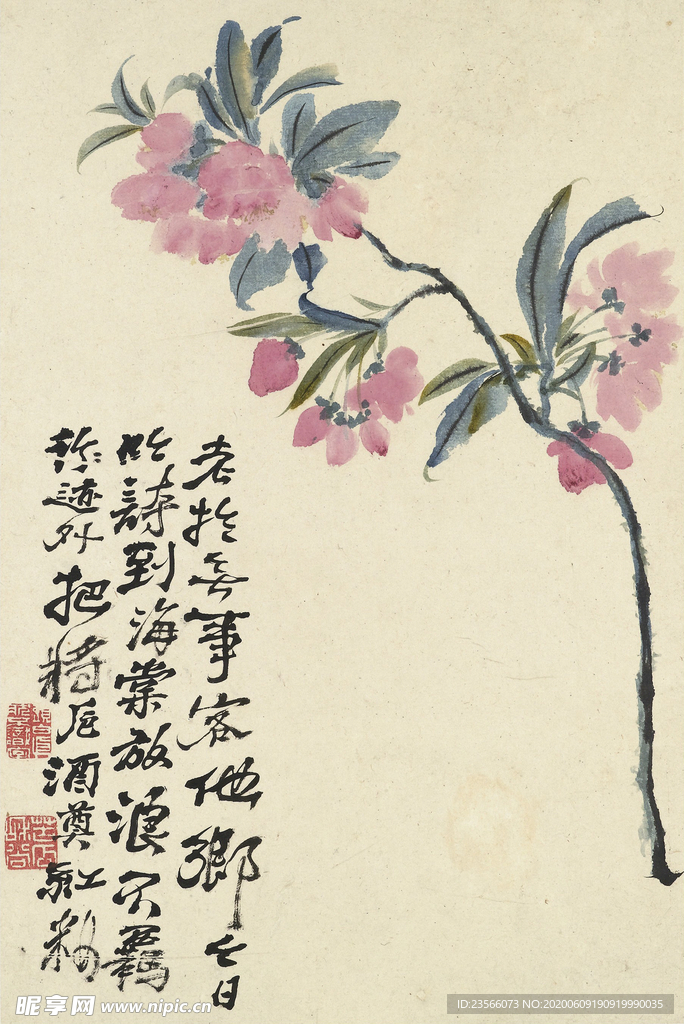 老於無事客他鄉今日
吟詩到海棠放浪不羈
形迹外把將卮酒奠紅粧
昵享网 www.nipic.cn
ID:23566073 NO:20200609190919990035